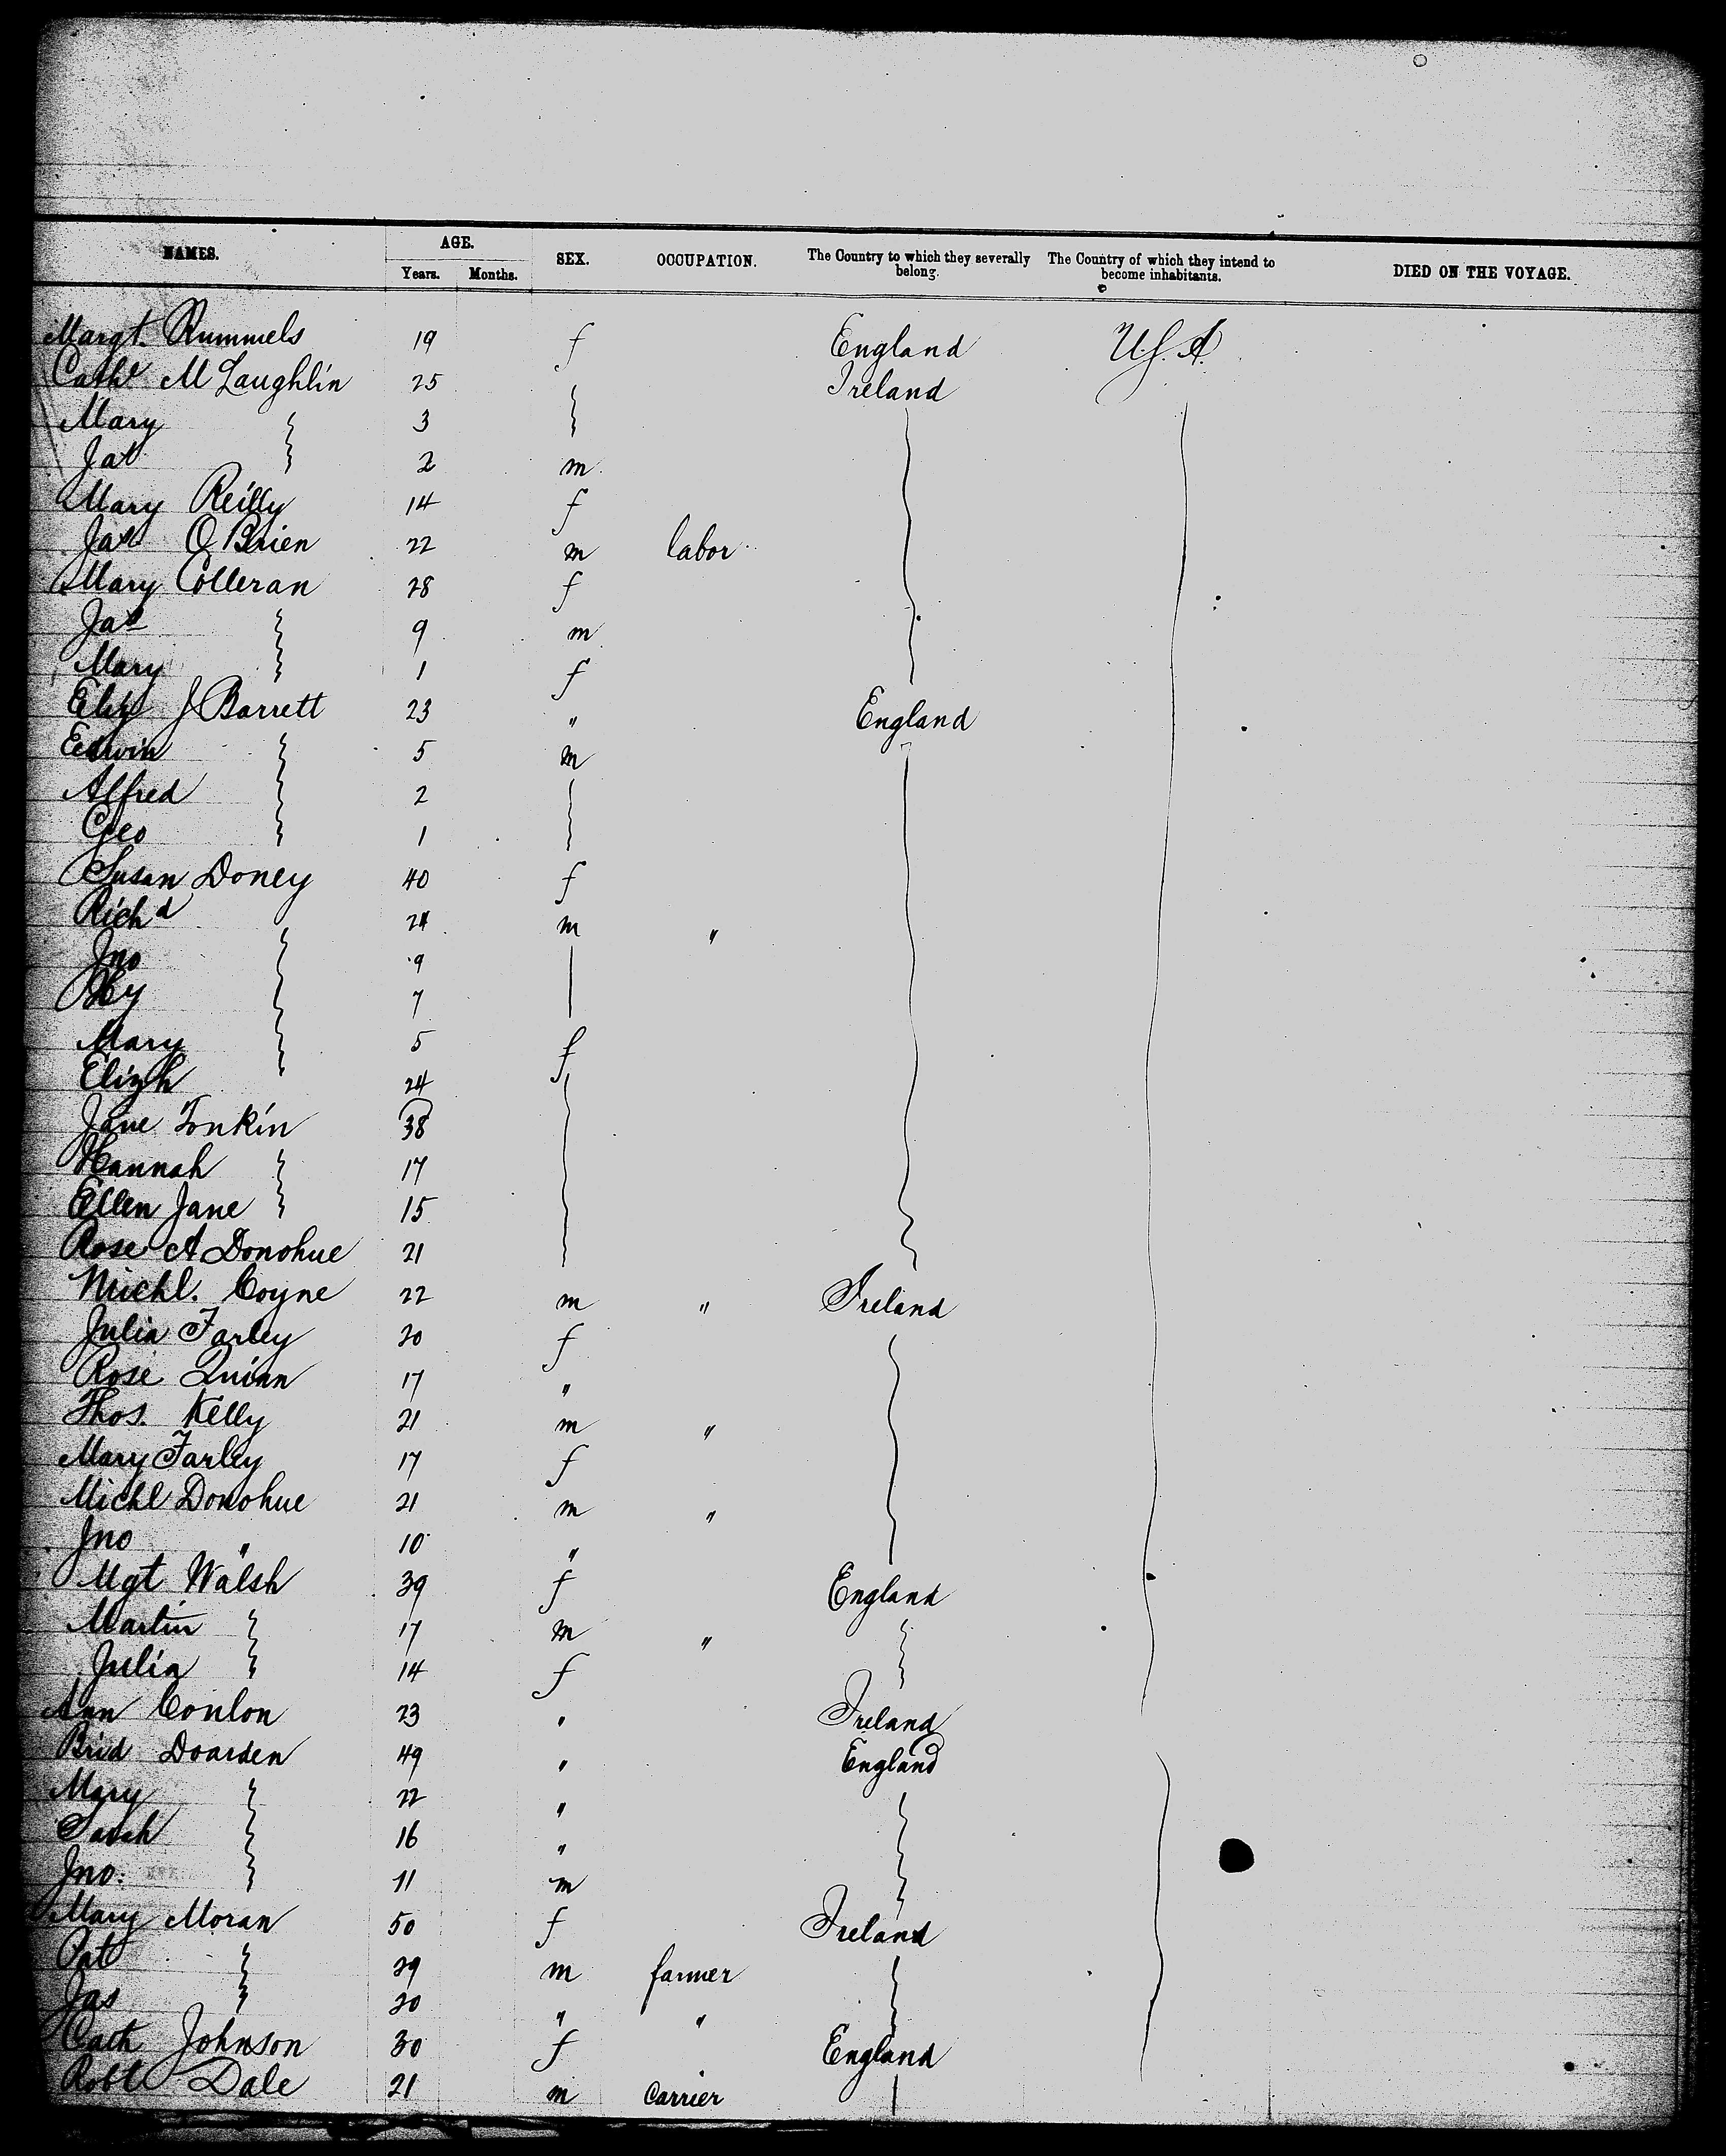 NAMES. AGE. SEX. OCCUPATION. The Country to which they severally belong. The Country of which they intend to become inhabitants. DIED ON THE VOYAGE.
Years. Months.
Margt. Rummels 19 f England U.S.A.
Cathe McLaughlin 25 Ireland
Mary 3
Jas 2 m
Mary Reilly 14 f
Jas O Brien 22 m labor
Mary Colleran 28 f
Jas 9 m
Mary 1 f
Eliz J Barrett 23 " England
Edwin 5 m
Alfred 2
Geo 1
Susan Doney 40 f
Richd 24 m "
Jno 9
Hy 7
Mary 5 f
Elizh 24
Jane Tonkin 38
Hannah 17
Ellen Jane 15
Rose A Donohue 21
Michl. Coyne 22 m " Ireland
Julia Farley 20 f
Rose Quinn 17 "
Thos. Kelly 21 m "
Mary Farley 17 f
Michl Donohue 21 m "
Jno " 10 "
Mgt Walsh 39 f England
Martin 17 m "
Julia 14 f
Ann Conlon 23 " Ireland
Brid Doarden 49 " England
Mary 22 "
Sarah 16 "
Jno. 11 m
Mary Moran 50 f Ireland
Pat 29 m farmer
Jas 20 " "
Cath Johnson 30 f England
Robt Dale 21 m carrier